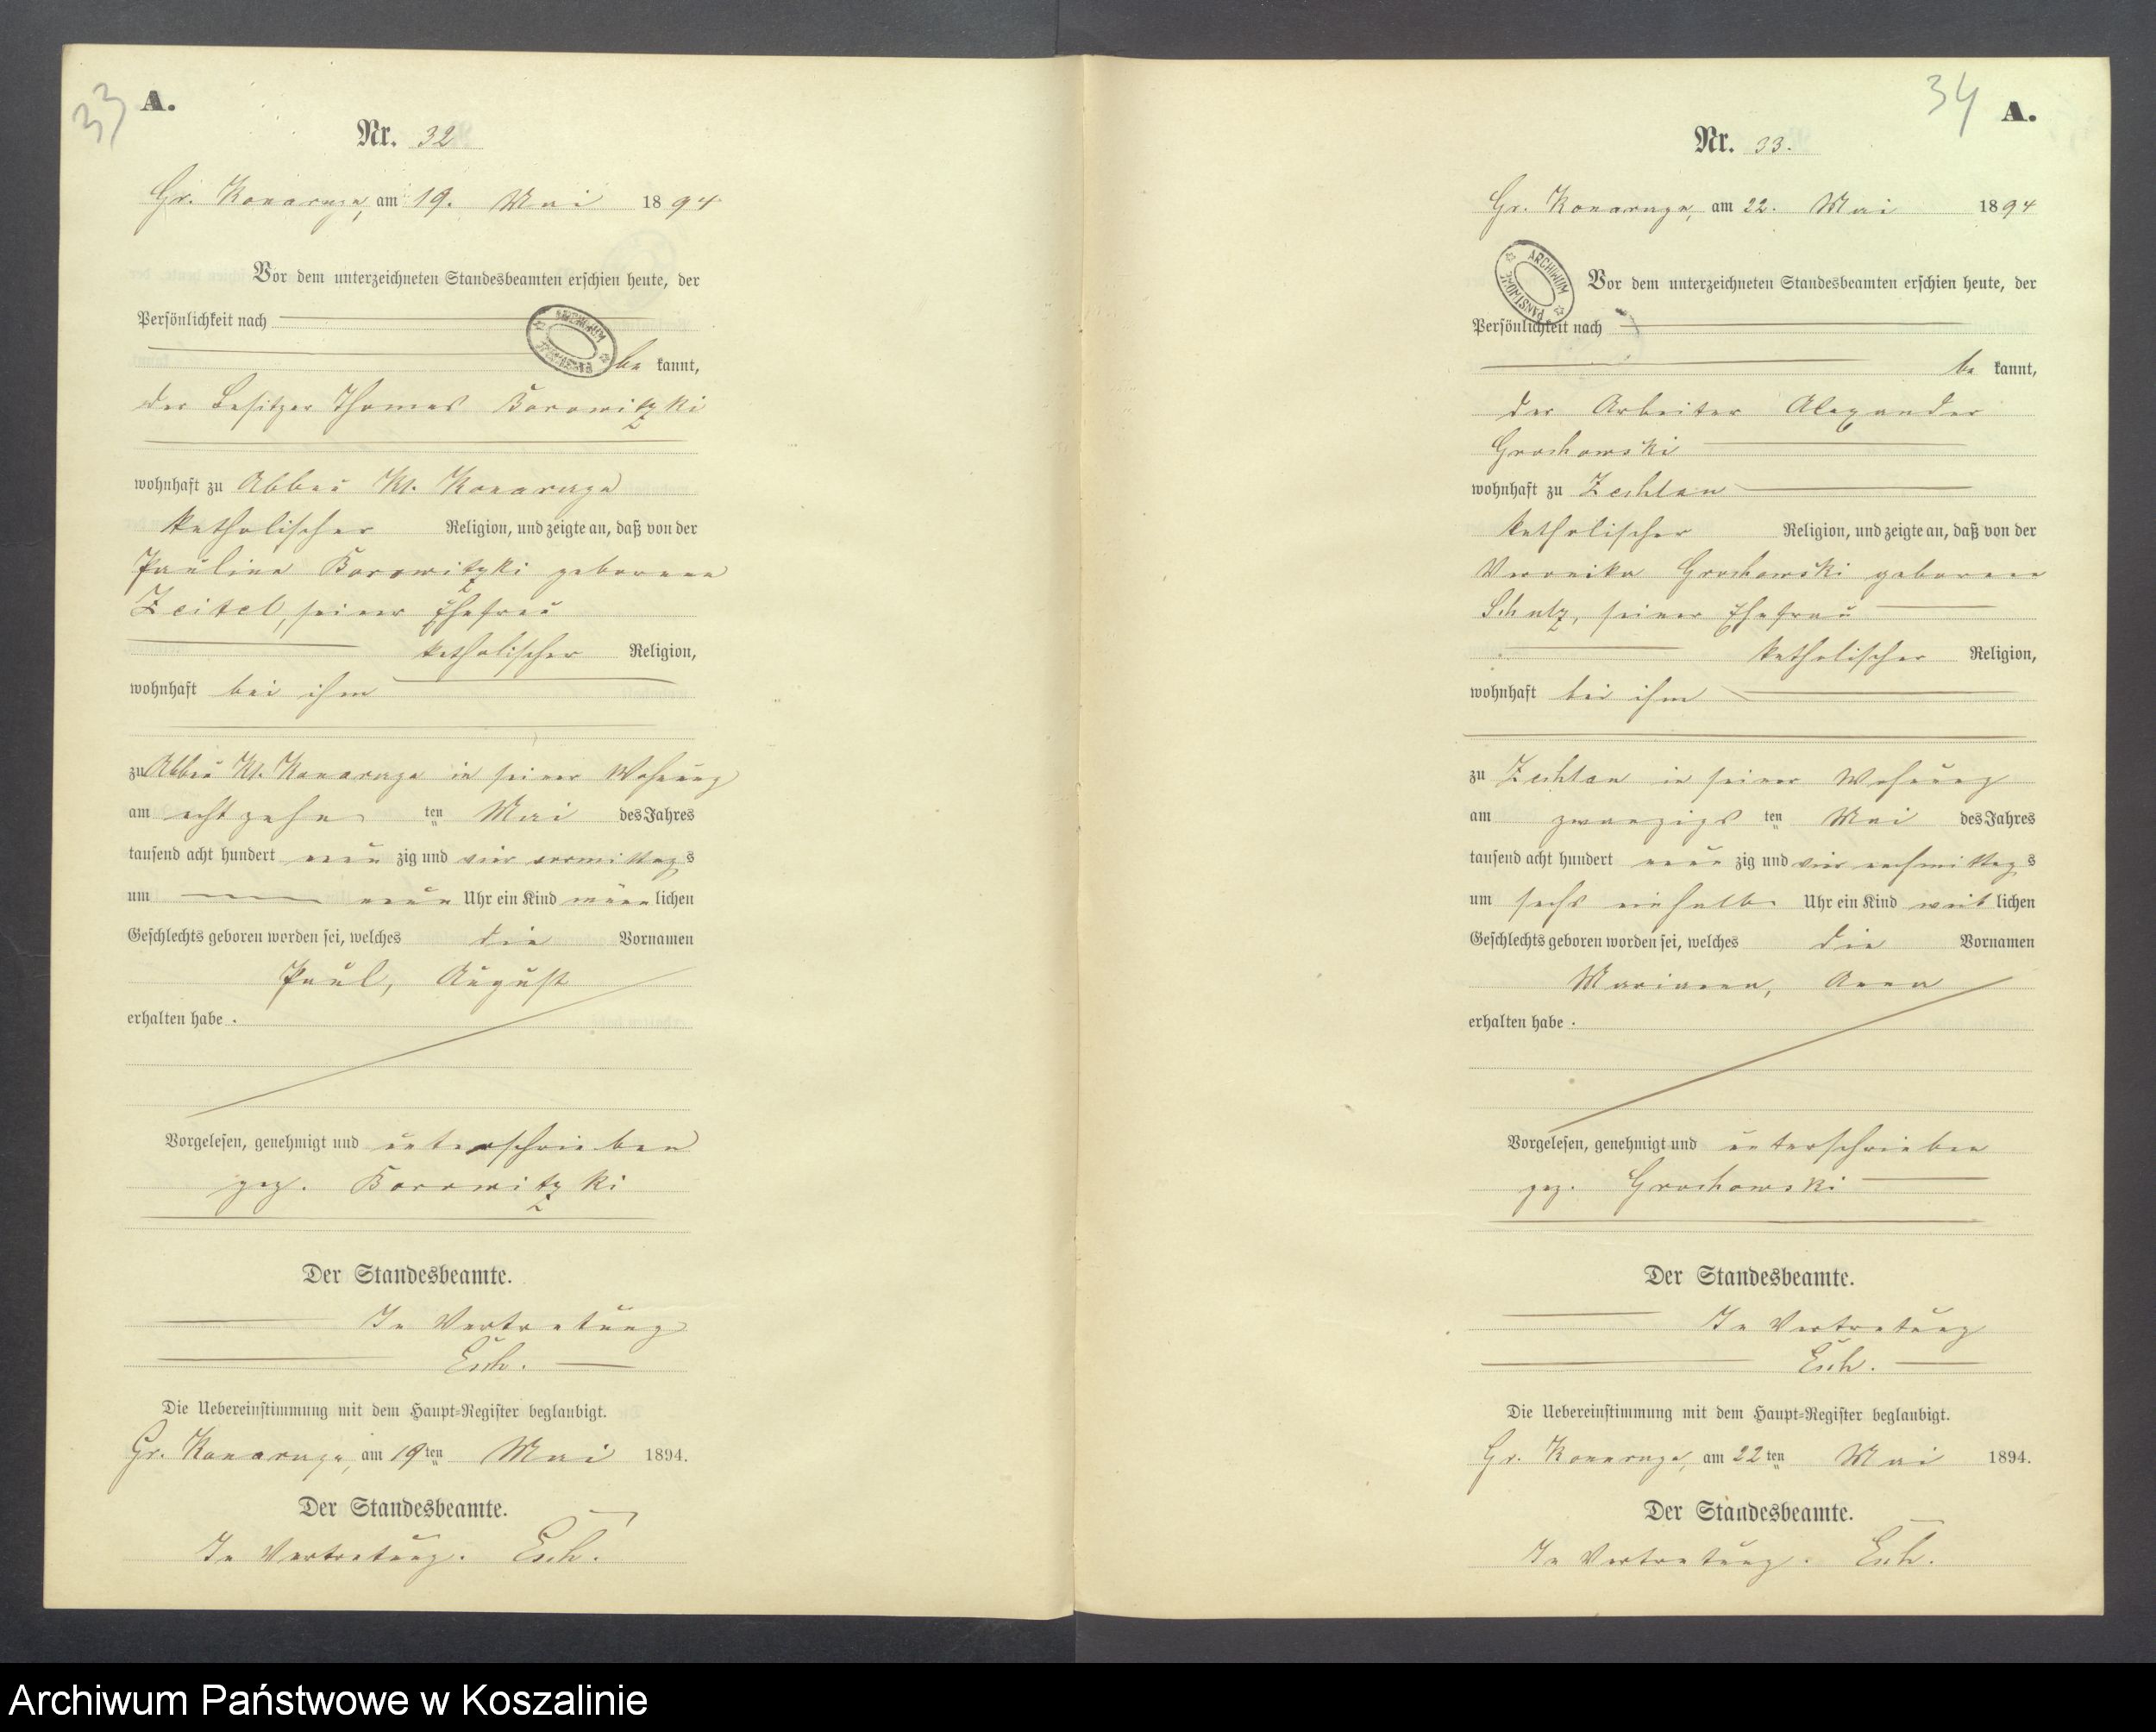 33
A.
Nr. 32
Gr. Konarzyn, am 19. Mai 1894
Vor dem unterzeichneten Standesbeamten erschien heute, der
Persönlichkeit nach
be kannt,
der Besitzer Thomas Borowitzki
wohnhaft zu Abbau Kl. Konarzyn
katholischer Religion, und zeigte an, daß von der
Pauline Borowitzki geborenen
Zeitel, seiner Ehefrau
katholischer Religion,
wohnhaft bei ihm
zu Abbau Kl. Konarzyn in seiner Wohnung
am achtzehn ten Mai des Jahres
tausend acht hundert neun zig und vier vormittags
um neun Uhr ein Kind männ lichen
Geschlechts geboren worden sei, welches die Vornamen
Paul, August
erhalten habe.
Vorgelesen, genehmigt und unterschrieben
gez. Borowitzki
Der Standesbeamte.
In Vertretung
Esch.
Die Uebereinstimmung mit dem Haupt-Register beglaubigt.
Gr. Konarzyn, am 19ten Mai 1894.
Der Standesbeamte.
In Vertretung. Esch.
34
A.
Nr. 33.
Gr. Konarzyn, am 22. Mai 1894
ARCHIWUM PAŃSTWOWE
Vor dem unterzeichneten Standesbeamten erschien heute, der
Persönlichkeit nach
be kannt,
der Arbeiter Alexander
Grochowski
wohnhaft zu Zechlau
katholischer Religion, und zeigte an, daß von der
Veronika Grochowski geborenen
Schulz, seiner Ehefrau
katholischer Religion,
wohnhaft bei ihm
zu Zechlau in seiner Wohnung
am zwanzigs ten Mai des Jahres
tausend acht hundert neun zig und vier nachmittags
um sechs einhalb Uhr ein Kind weib lichen
Geschlechts geboren worden sei, welches die Vornamen
Marianna, Anna
erhalten habe.
Vorgelesen, genehmigt und unterschrieben
gez. Grochowski
Der Standesbeamte.
In Vertretung
Esch.
Die Uebereinstimmung mit dem Haupt-Register beglaubigt.
Gr. Konarzyn, am 22ten Mai 1894.
Der Standesbeamte.
In Vertretung. Esch.
Archiwum Państwowe w Koszalinie